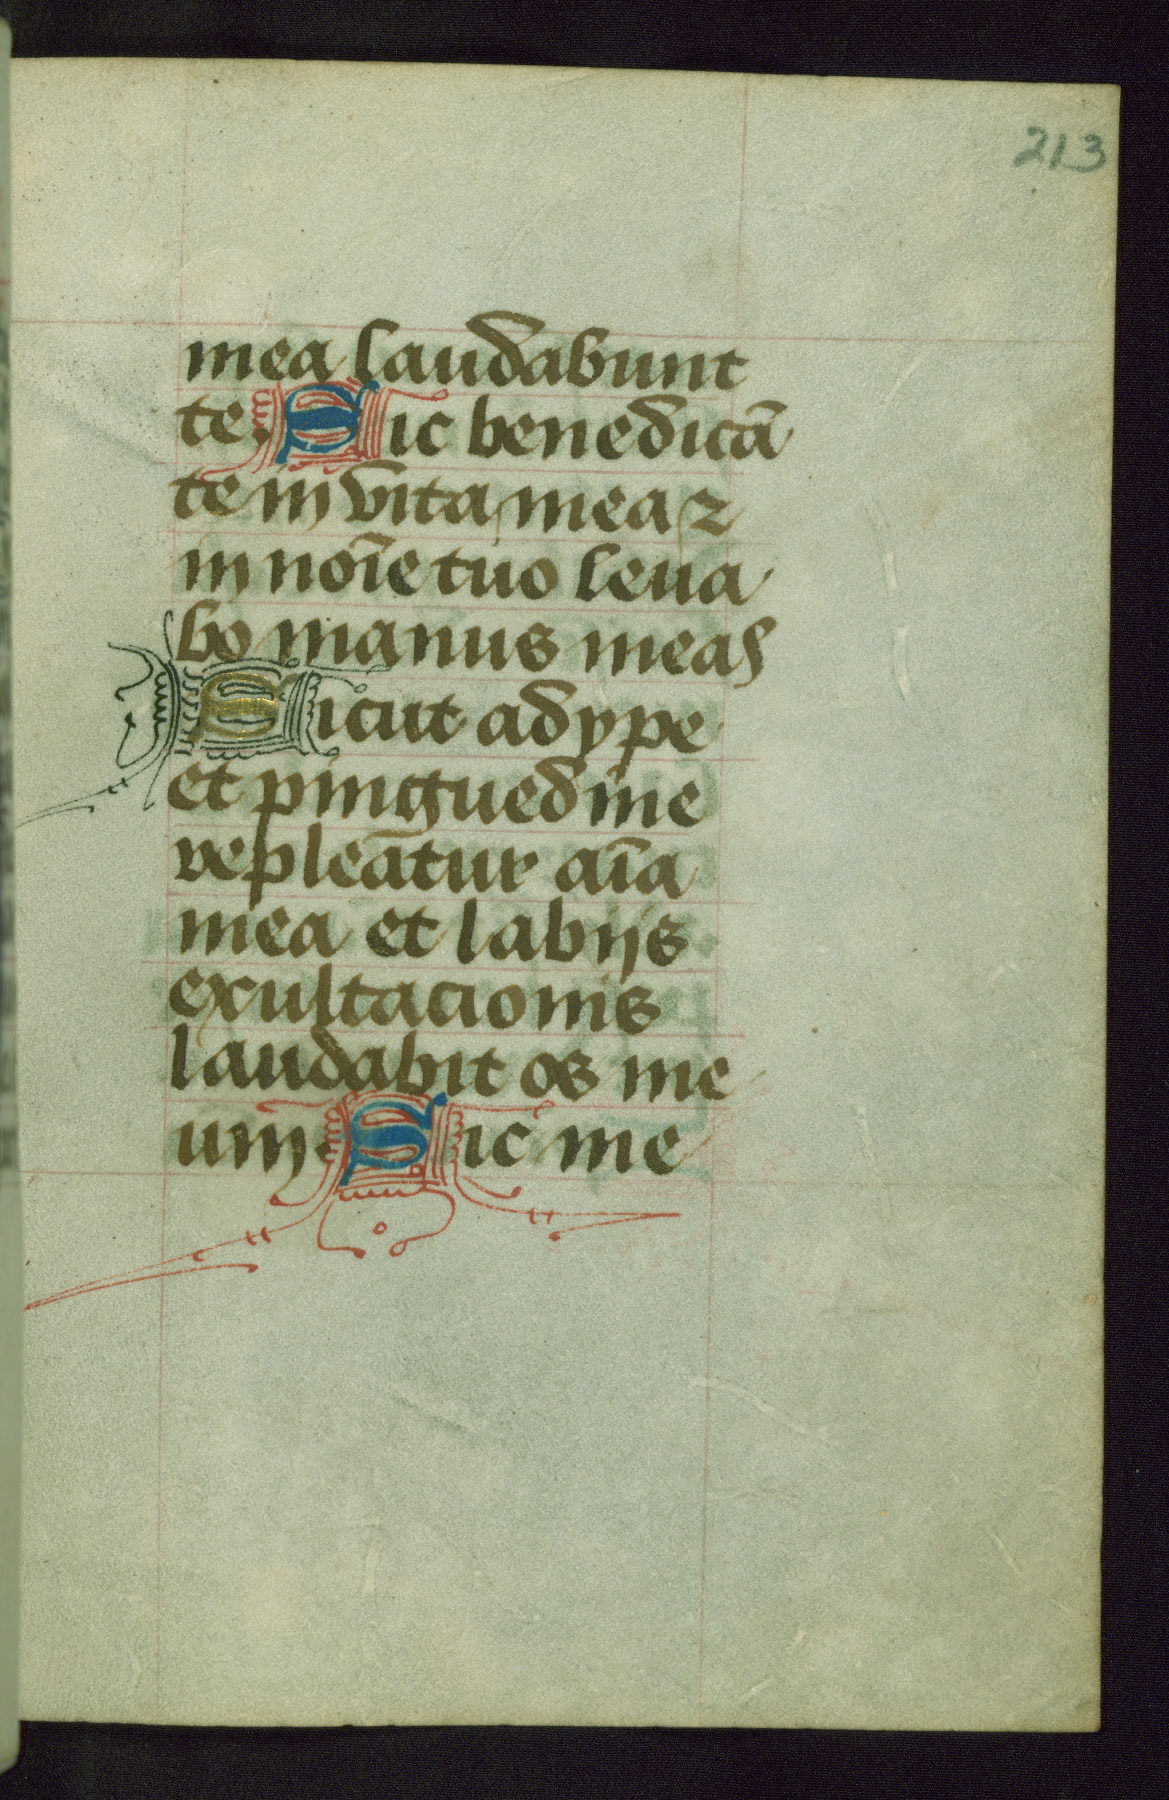 213
mea laudabunt
te. Sic benedicā
te in vita mea ⁊
in noīe tuo leua
bo manus meas
Sicut adype
et pinguedine
repleātur aīa
mea et labijs
exultacionis
laudabit os me
um. Sic me